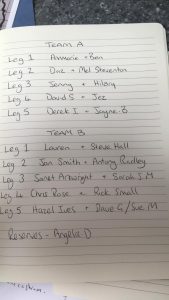 TEAM A
Leg 1 Annmarie + Ben
Leg 2 Daz + Mel Steventon
Leg 3 Jonny + Hilary
Leg 4 David S + Jez
Leg 5 Derek I + Jayne B
TEAM B
Leg 1 Lauren + Steve Hall
Leg 2 Jon Smith + Antony Radley
Leg 3 Janet Arkwright + Sarah J.M
Leg 4 Chris Rose + Rick Small
Leg 5 Hazel Ives + Dave G / Sue M
Reserves - Angela D